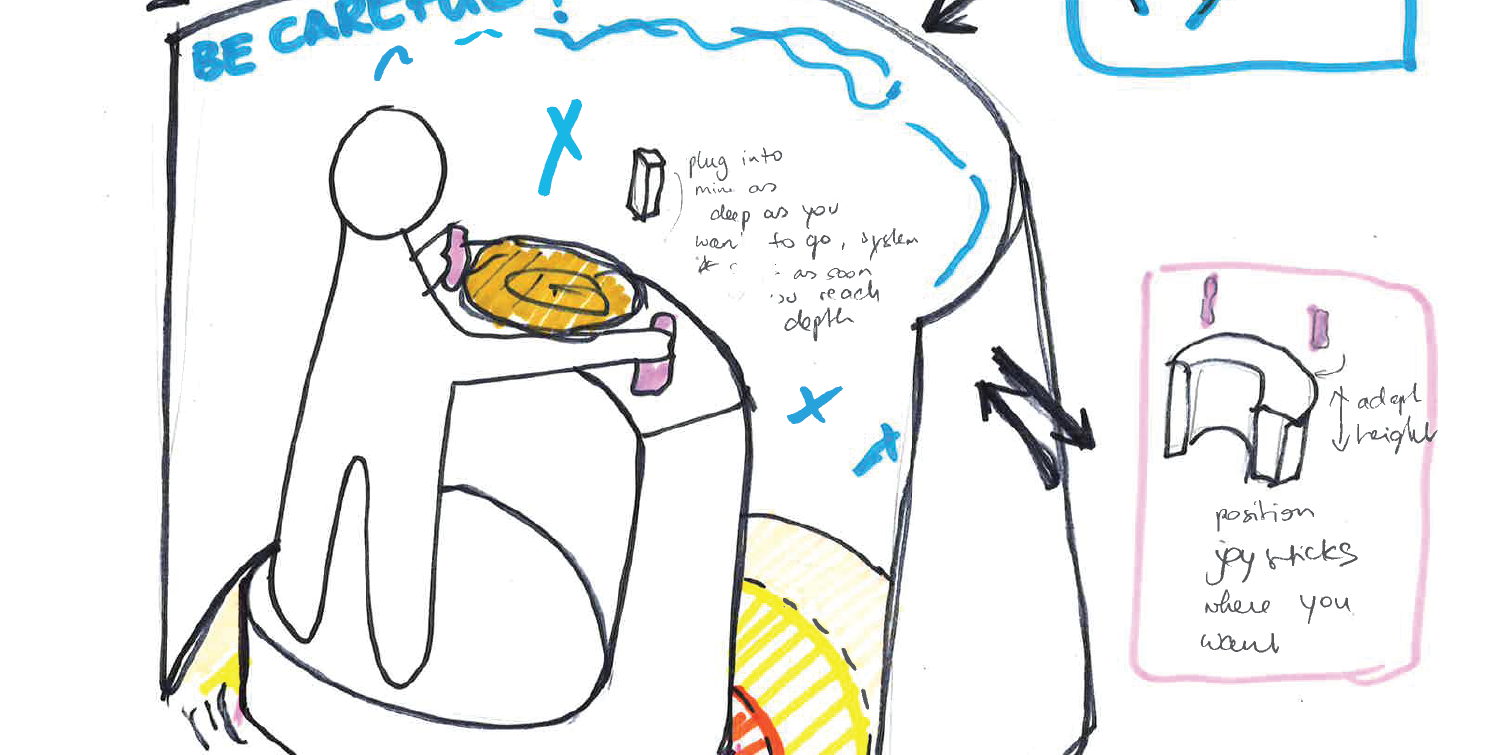 BE CAREFUL!
plug into
mine as
deep as you
want to go, system
as soon
you reach
depth
adapt
height
position
joysticks
where you
want